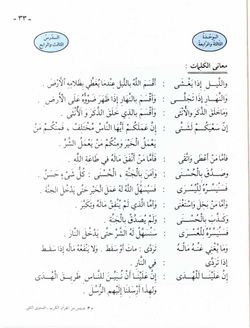 - ٣٣ -
الدرس
الثالث والرابع
الموضحة
الثالثة والرابعة
معاني الكلمات :
والليـل إذا يَغْشَـى : أقسم الله بالليل عندما يغطي بظلامه الأرض .
والنهـار إذا تجلـى : وأقسم بالنهار إذا ظهر ضوؤه على الأرض .
وما خلق الذكر والأنثى : وأقسم بالذي خلق الذكر والأنثى .
إن سعيكم لشتى : إن عملكم أيها الناس مختلف ، فمنكم من
يعمل الخير ومنكم من يعمل الشر .
فأما من أعطى واتقى : فأما من أنفق ماله في طاعة الله .
وصدق بالحسنى : وآمن بالجنة . الحسنى : كل شيء حسن .
فسنيسره لليسرى : فسيسهل الله له عمل الخير حتى يدخل الجنة .
وأما من بخل واستغنى : وأما الذي لم ينفق ماله وتكبر .
وكذب بالحسنى : ولم يصدق بالجنة .
فسنيسره للعسرى : فسيسهل له الشر حتى يدخل النار .
وما يغني عنه ماله إذا تردى : تردى : مات أو سقط . ولا ينفعه ماله إذا سقط
في النار .
إن علينا للهدى : إن علينا أن نبين للناس طريق الهدى
وبهذا أرسلنا إليهم الرسل .